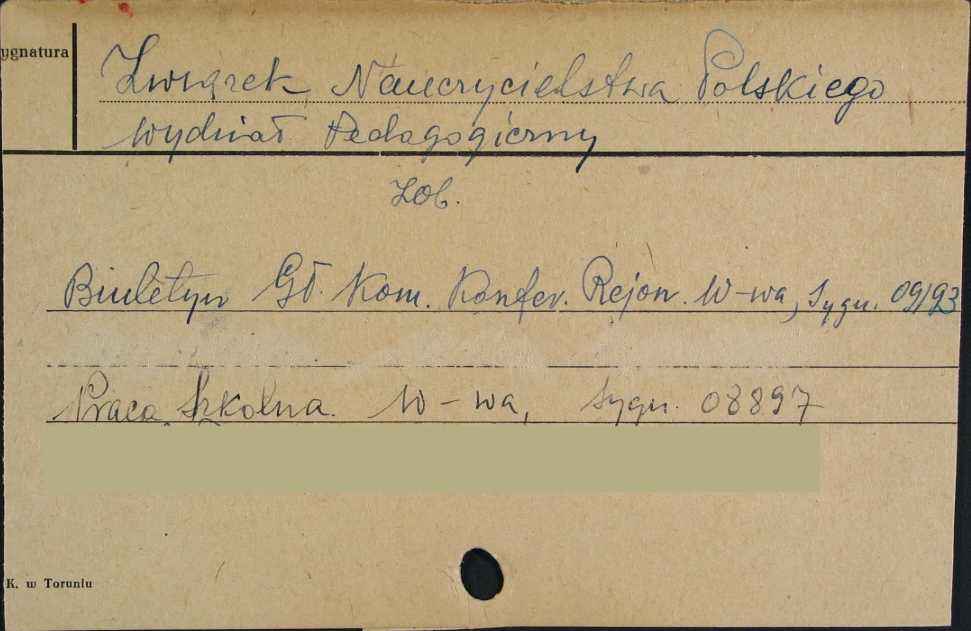 ygnatura
Związek Nauczycielstwa Polskiego
Wydział Pedagogiczny
Zob.
Biuletyn Gł. Kom. Konfer. Rejon. W-wa, Sygn. 09193
Praca Szkolna. W-wa, Sygn. 08897
K. w Toruniu